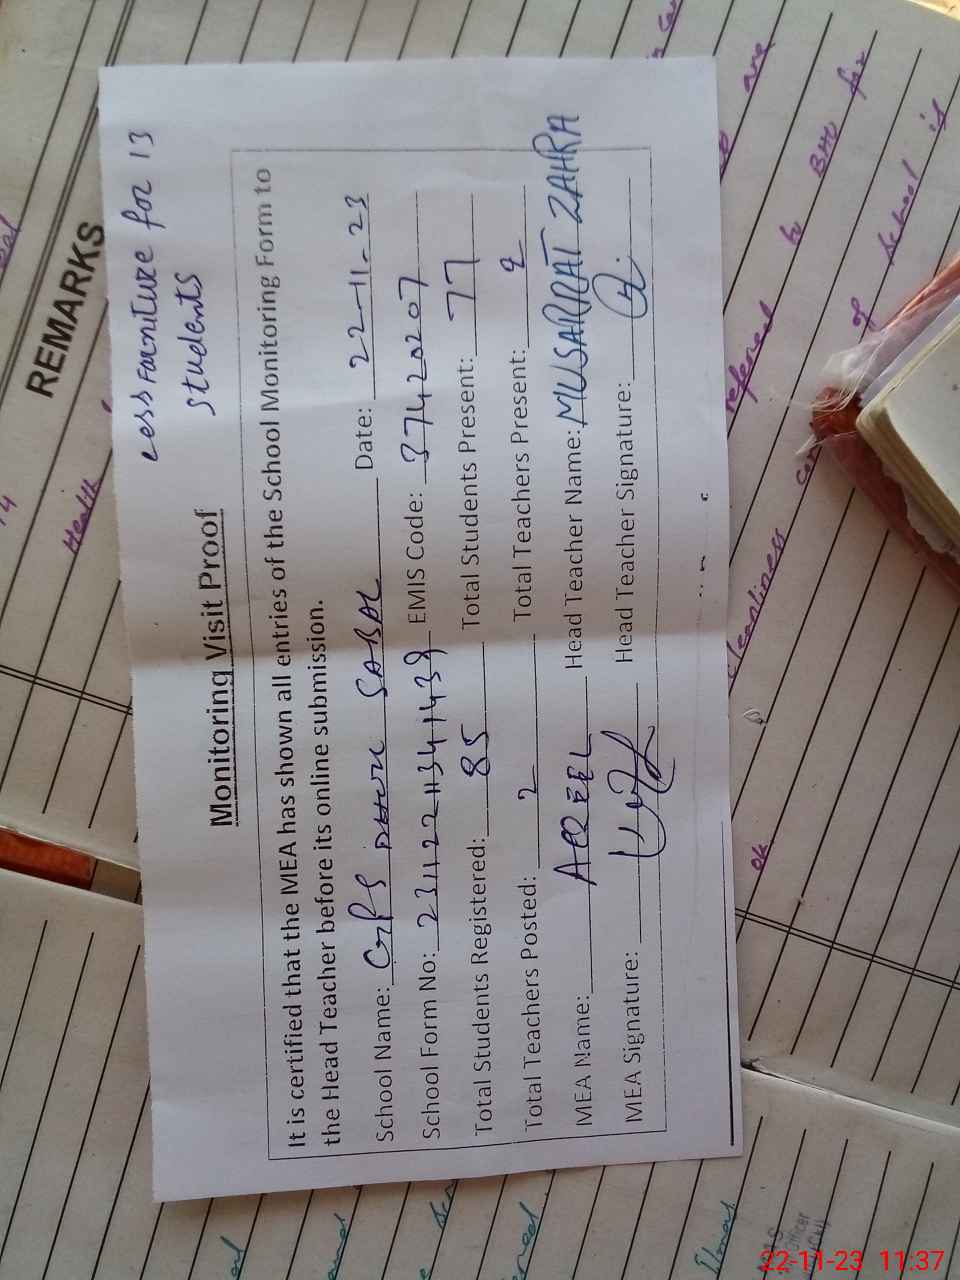 Less Farniture for 13
students
Monitoring Visit Proof
It is certified that the MEA has shown all entries of the School Monitoring Form to
the Head Teacher before its online submission.
School Name: GPS DHUK SABAL Date: 22-11-23
School Form No: 23112211341439 EMIS Code: 37420207
Total Students Registered: 85 Total Students Present: 77
Total Teachers Posted: 2 Total Teachers Present: 2
MEA Name: AQEEL Head Teacher Name: MUSARRAT ZAHRA
MEA Signature: Head Teacher Signature:
REMARKS
Health
are
to BHU for
refered
Cleanliness of School is
ok
22-11-23 11:37